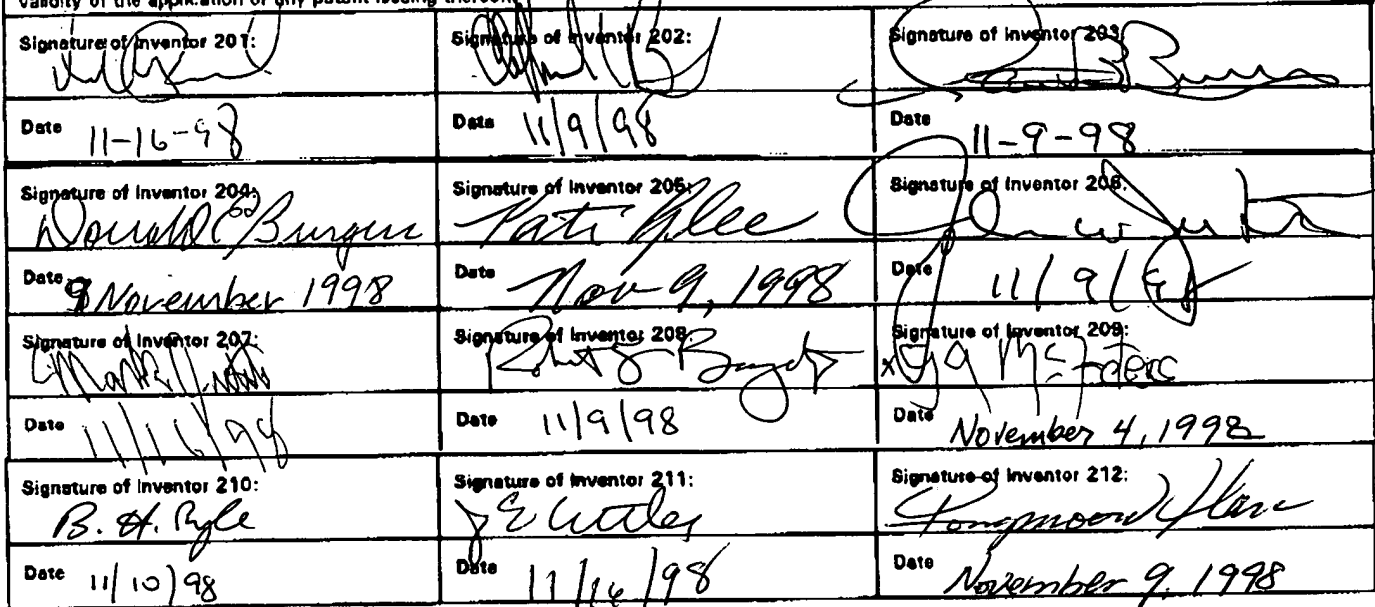 validity of the application or any patent issuing thereon.
Signature of Inventor 201:
Signature of Inventor 202:
Signature of Inventor 203:
Date 11-16-98
Date 11/9/98
Date 11-9-98
Signature of Inventor 204:
Signature of Inventor 205:
Signature of Inventor 206:
Donald E Burgess
Pati Glee
John W
Date 9 November 1998
Date Nov 9, 1998
Date 11/9/98
Signature of Inventor 207:
Signature of Inventor 208:
Signature of Inventor 209:
Mark
Robert S
x G A McFeters
Date 11/16/98
Date 11/9/98
Date November 4, 1998
Signature of Inventor 210:
Signature of Inventor 211:
Signature of Inventor 212:
B. H. Pyle
J E Cutler
Date 11/10/98
Date 11/16/98
Date November 9, 1998